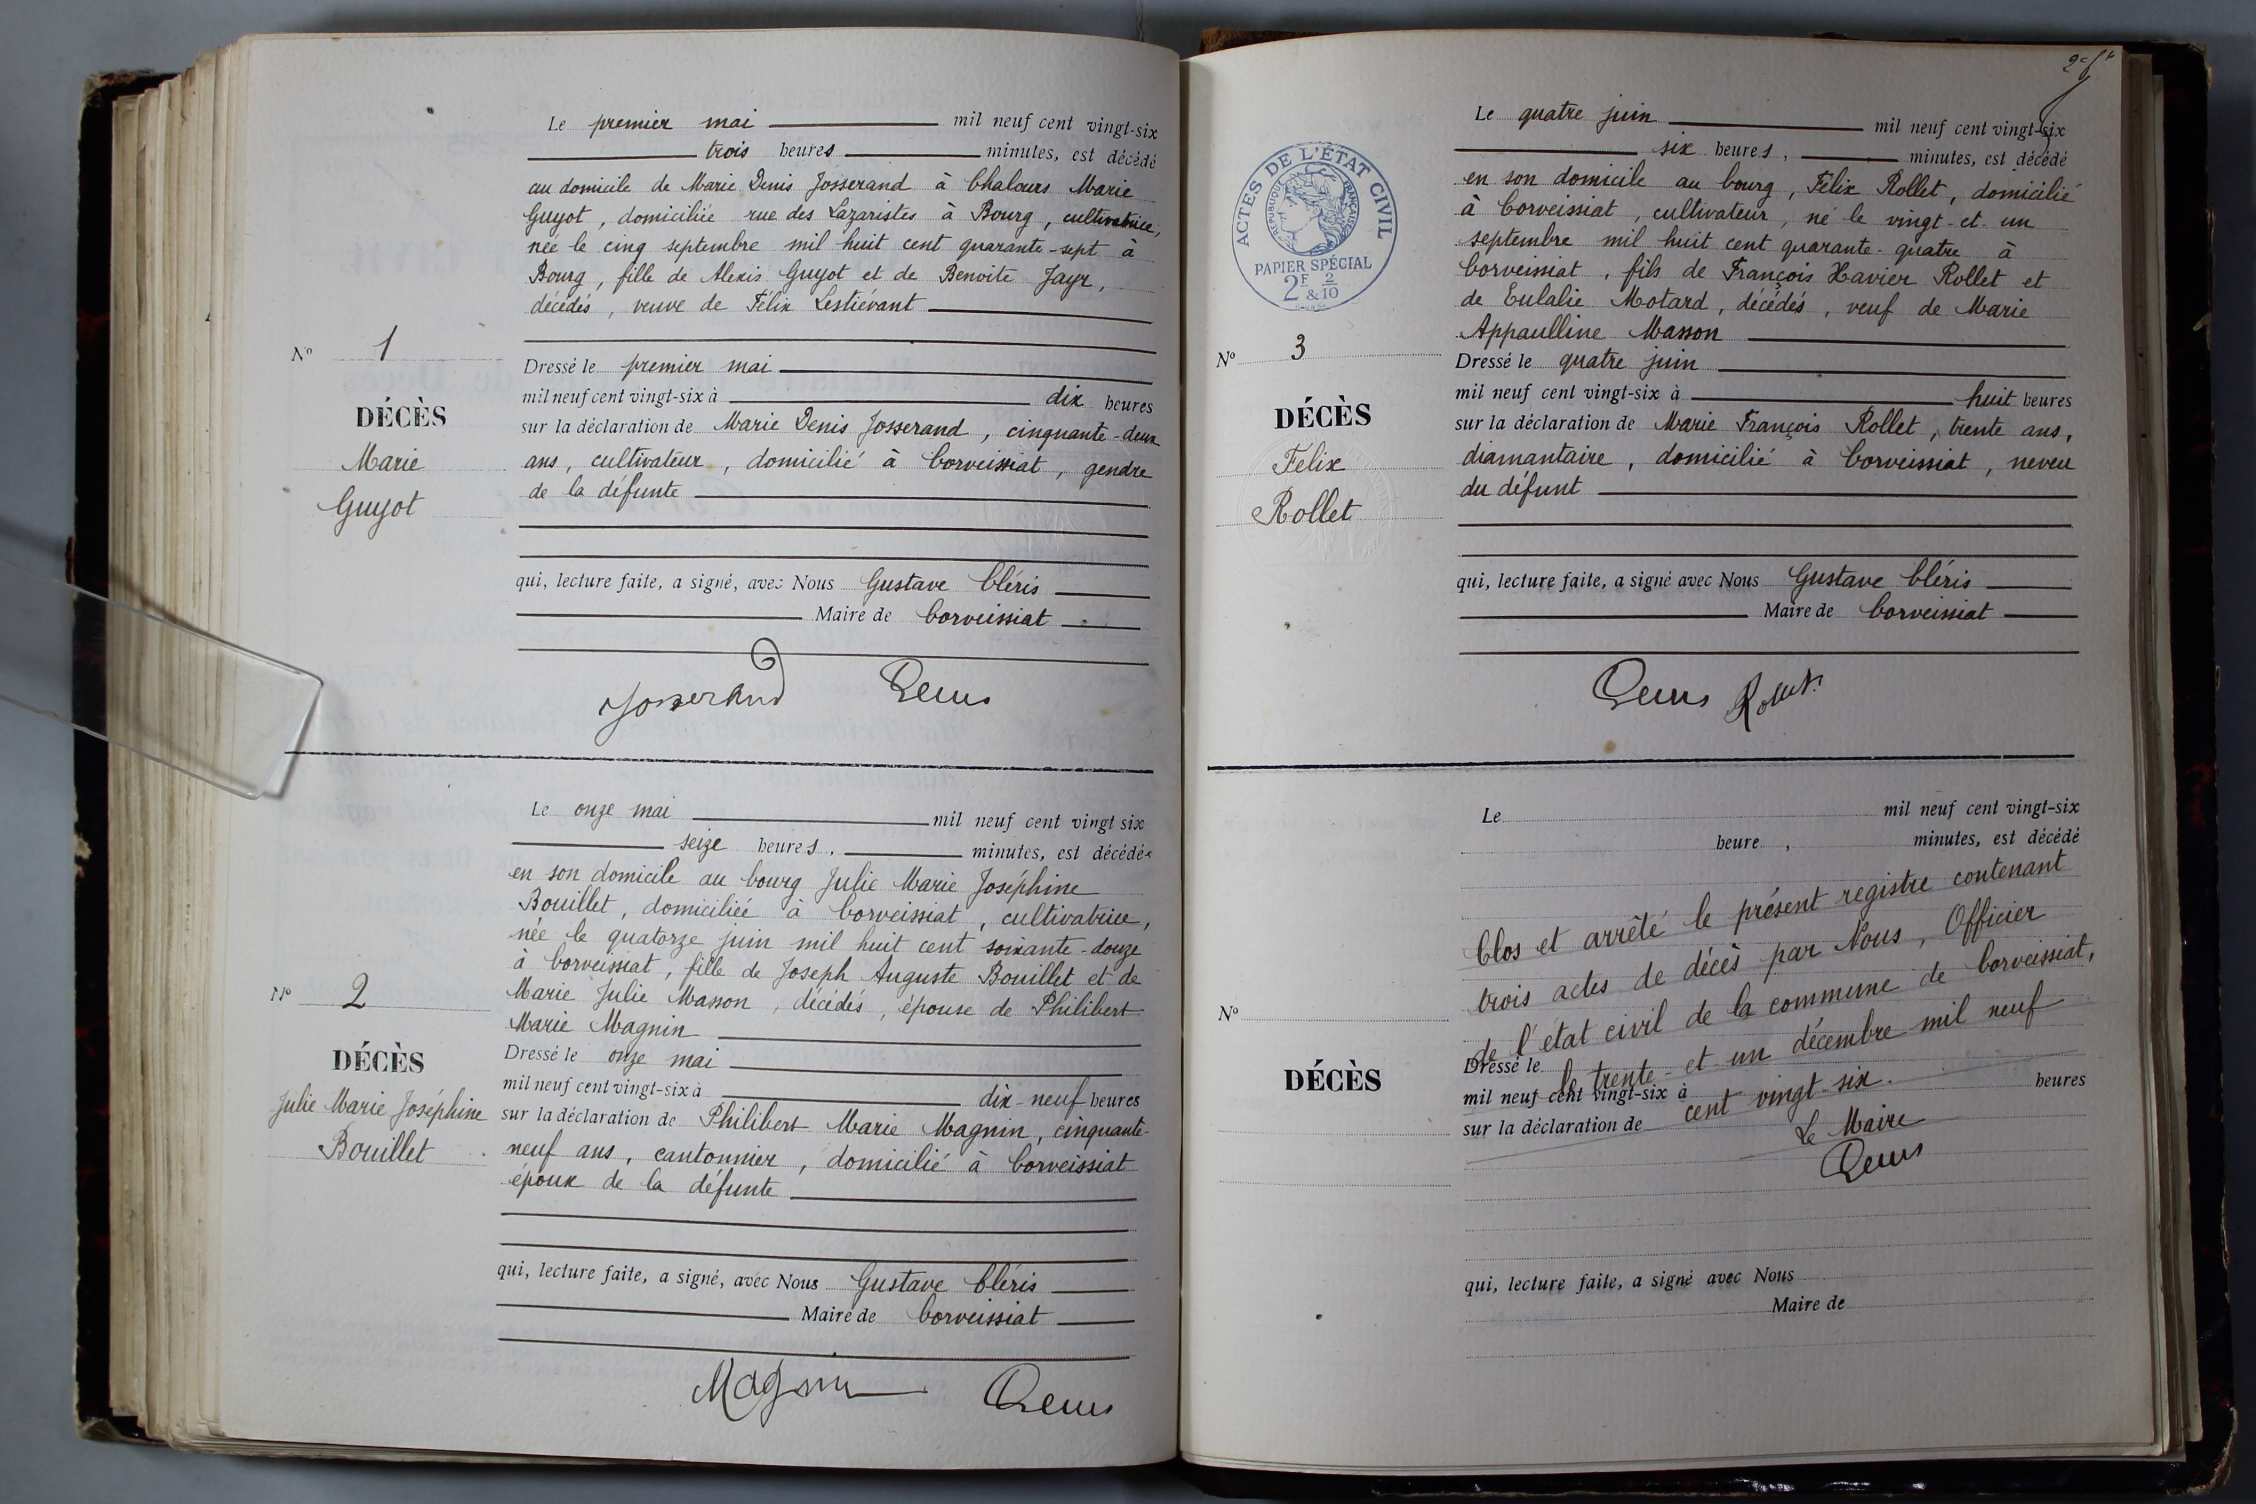 Le premier mai mil neuf cent vingt-six
trois heures minutes, est décédé
au domicile de Marie Denis Josserand à Chalours Marie
Guyot, domiciliée rue des Lazaristes à Bourg, cultivatrice,
née le cinq septembre mil huit cent quarante-sept à
Bourg, fille de Alexis Guyot et de Benoite Jayr,
décédés, veuve de Félix Lestiévant
Nº 1
DÉCÈS
Marie
Guyot
Dressé le premier mai
mil neuf cent vingt-six à dix heures
sur la déclaration de Marie Denis Josserand, cinquante-deux
ans, cultivateur, domicilié à Corveissiat, gendre
de la défunte
qui, lecture faite, a signé, avec Nous Gustave Cléris
Maire de Corveissiat
Josserand
Le onze mai mil neuf cent vingt six
seize heures, minutes, est décédée
en son domicile au bourg Julie Marie Joséphine
Bouillet, domiciliée à Corveissiat, cultivatrice,
née le quatorze juin mil huit cent soixante-douze
à Corveissiat, fille de Joseph Auguste Bouillet et de
Marie Julie Masson, décédés, épouse de Philibert
Marie Magnin
Nº 2
DÉCÈS
Julie Marie Joséphine
Bouillet
Dressé le onze mai
mil neuf cent vingt-six à dix-neuf heures
sur la déclaration de Philibert Marie Magnin, cinquante-
neuf ans, cantonnier, domicilié à Corveissiat
époux de la défunte
qui, lecture faite, a signé, avec Nous Gustave Cléris
Maire de Corveissiat
Magnin
ACTES DE L'ÉTAT CIVIL
RÉPUBLIQUE FRANÇAISE
PAPIER SPÉCIAL
2F 2
& 10
Le quatre juin mil neuf cent vingt-six
six heures, minutes, est décédé
en son domicile au bourg, Félix Rollet, domicilié
à Corveissiat, cultivateur, né le vingt-et-un
septembre mil huit cent quarante-quatre à
Corveissiat, fils de François Xavier Rollet et
de Eulalie Motard, décédés, veuf de Marie
Appaulline Masson
Nº 3
DÉCÈS
Félix
Rollet
Dressé le quatre juin
mil neuf cent vingt-six à huit heures
sur la déclaration de Marie François Rollet, trente ans,
diamantaire, domicilié à Corveissiat, neveu
du défunt
qui, lecture faite, a signé avec Nous Gustave Cléris
Maire de Corveissiat
Rollet
Le mil neuf cent vingt-six
heure, minutes, est décédé
Clos et arrêté le présent registre contenant
trois actes de décès par Nous, Officier
de l'état civil de la commune de Corveissiat,
le trente-et-un décembre mil neuf
cent vingt-six.
Le Maire
Nº
DÉCÈS
Dressé le
mil neuf cent vingt-six à heures
sur la déclaration de
qui, lecture faite, a signé avec Nous
Maire de